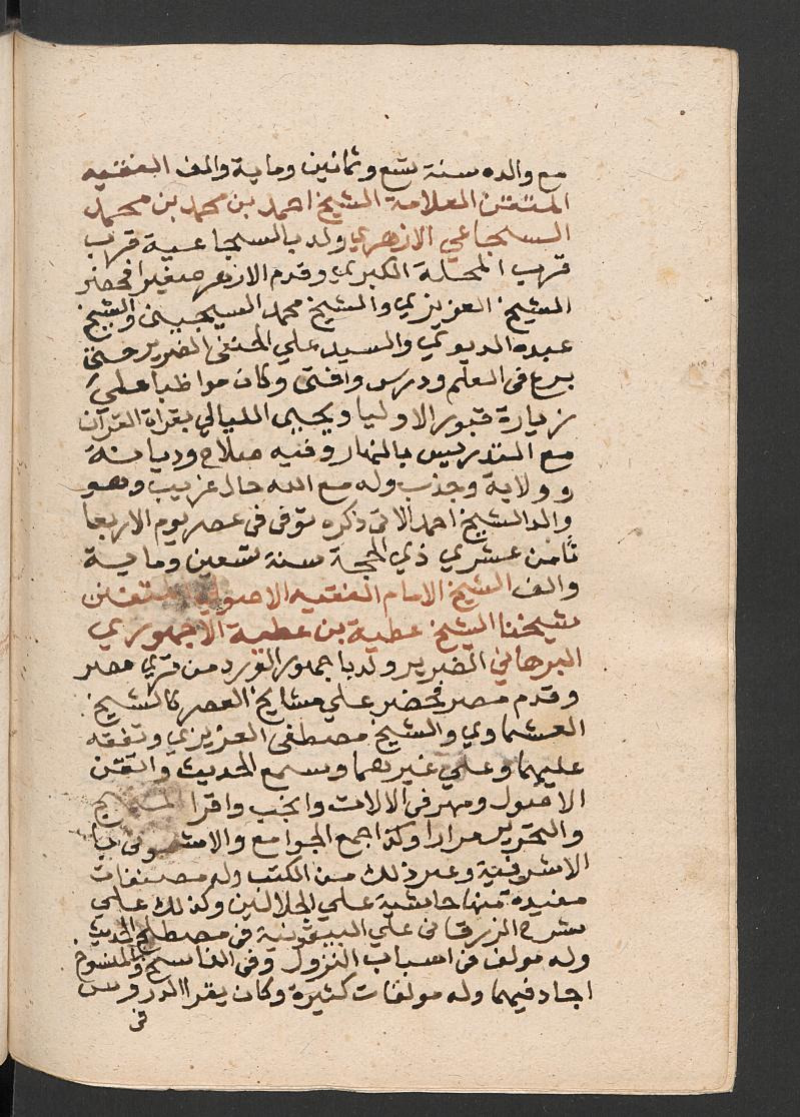 مع والده سنة تسع وثمانين وماية والف الفقيه
المتقن العلامة الشيخ احمد بن محمد بن محمد
السجاعي الازهري ولد بالسجاعية قريب
قريب المحلة الكبري وقدم الازهر صغيرا فحضر
الشيخ العزيزي والشيخ محمد السجيني والشيخ
عبده الديوي والسيد علي الحنفي الضرير حتى
برع في العلم ودرس وافتى وكان مواظبا علي
زيارة قبور الاوليا ويحيى الليالي بقراة القران
مع التدريس بالنهار وفيه صلاح وديانة
وولاية وجذب وله مع الله حال غريب وهو
والد الشيخ احمد الاتي ذكره توفى في عصر يوم الاربعا
ثامن عشري ذي الحجة سنة تسعين وماية
والف الشيخ الامام الفقيه الاصولي المتفنن
شيخنا الشيخ عطية بن عطية الاجهوري
البرهاني الضرير ولد باجهور الورد من قري مصر
وقدم مصر فحضر علي مشايخ العصر كالشيخ
العشماوي والشيخ مصطفى العزيزي وتفقه
عليهما وعلي غيرهما وسمع الحديث واتقن
الاصول ومهر في الالات وانجب واقرا المنهج
والتحرير مرارا وكذا جمع الجوامع والاشموني
الاشرفية وغير ذلك من الكتب وله مصنفات
مفيدة منها حاشية علي الجلالين وكذلك علي
شرح الزرقاني علي البيقونية في مصطلح الحديث
وله مولف في اسباب النزول وفي الناسخ والمنسوخ
اجاد فيهما وله مولفات كثيرة وكان يقرا الدروس
في